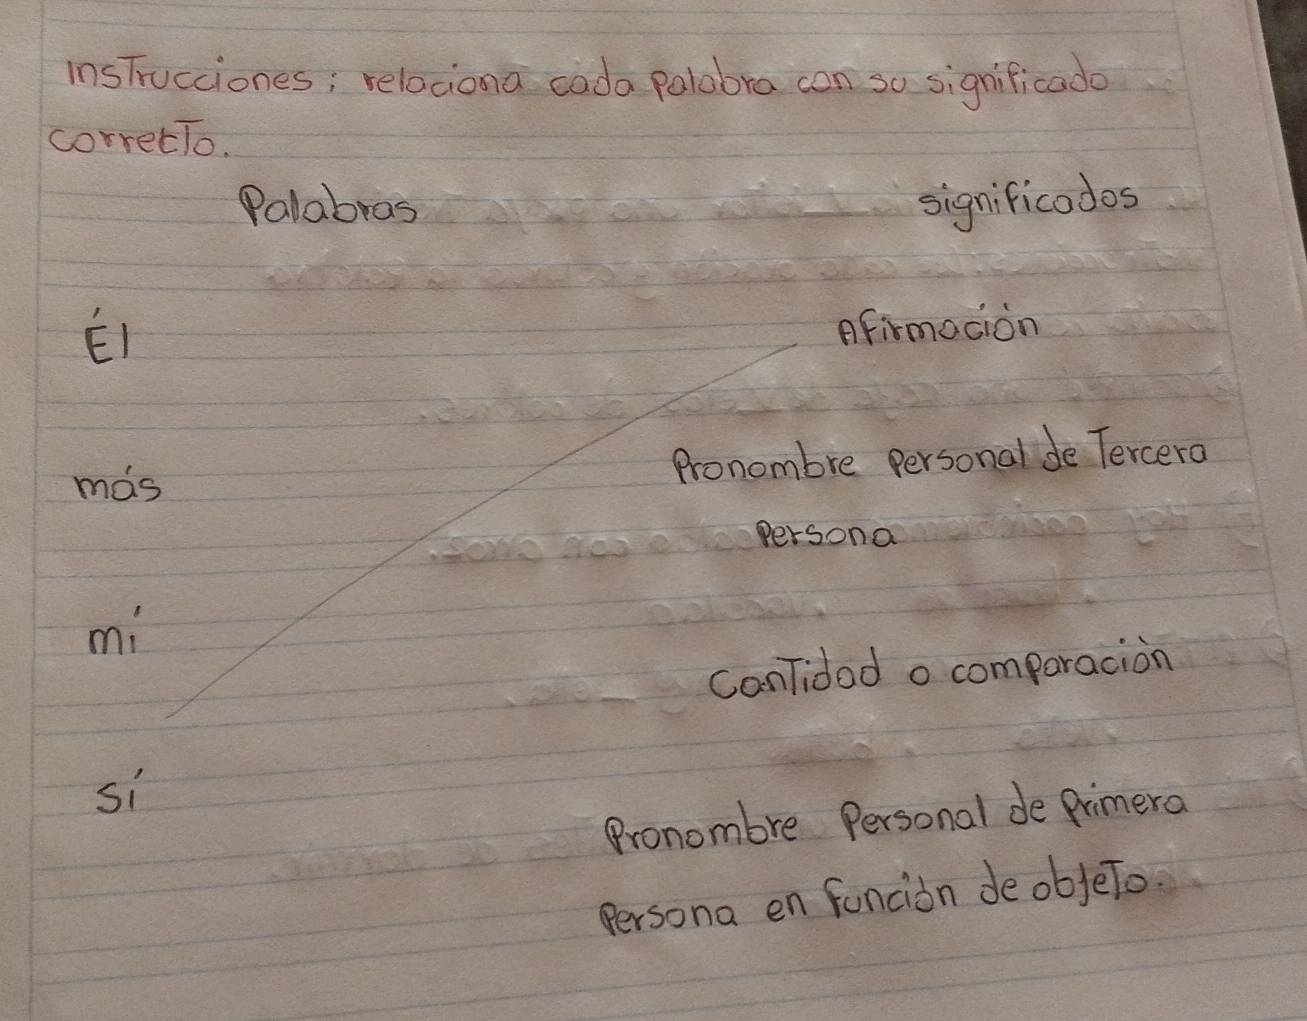 Instrucciones; relaciona cada palabra con su significado
correcto.
Palabras significados
Él Afirmación
más Pronombre Personal de Tercera
Persona
mí Cantidad o comparación
sí Pronombre Personal de Primera
Persona en función de objeto.